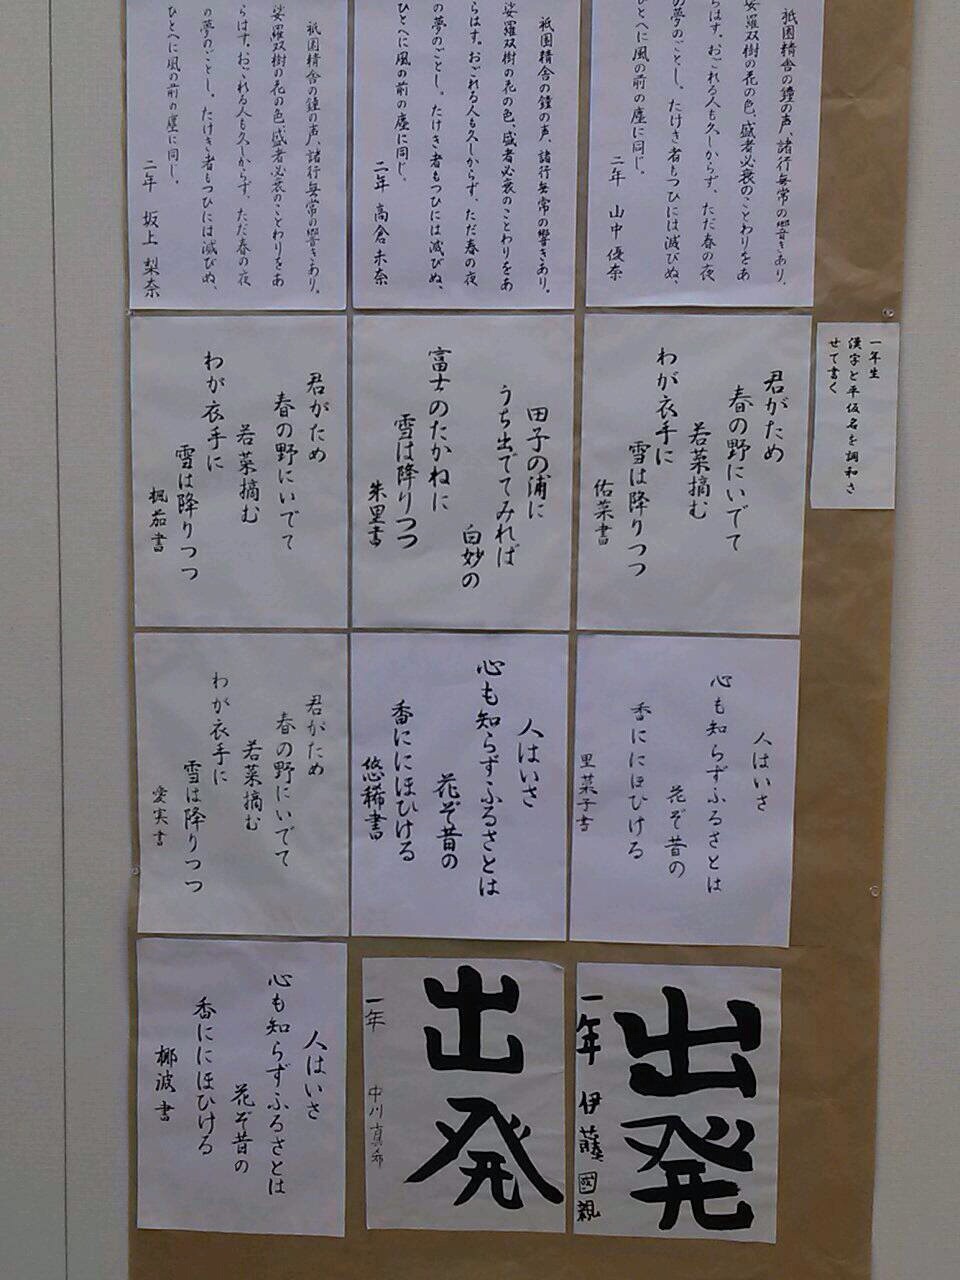 祇園精舎の鐘の声、諸行無常の響きあり。
娑羅双樹の花の色、盛者必衰のことわりをあ
らはす。おごれる人も久しからず、ただ春の夜
の夢のごとし。たけき者もつひには滅びぬ、
ひとへに風の前の塵に同じ。
二年 山中優奈
祇園精舎の鐘の声、諸行無常の響きあり。
娑羅双樹の花の色、盛者必衰のことわりをあ
らはす。おごれる人も久しからず、ただ春の夜
の夢のごとし。たけき者もつひには滅びぬ、
ひとへに風の前の塵に同じ。
二年 高倉未奈
祇園精舎の鐘の声、諸行無常の響きあり。
娑羅双樹の花の色、盛者必衰のことわりをあ
らはす。おごれる人も久しからず、ただ春の夜
の夢のごとし。たけき者もつひには滅びぬ、
ひとへに風の前の塵に同じ。
二年 坂上梨奈
一年生
漢字と平仮名を調和さ
せて書く
君がため
春の野にいでて
若菜摘む
わが衣手に
雪は降りつつ
佑菜書
田子の浦に
うち出でてみれば
白妙の
富士のたかねに
雪は降りつつ
朱里書
君がため
春の野にいでて
若菜摘む
わが衣手に
雪は降りつつ
楓茄書
人はいさ
心も知らずふるさとは
花ぞ昔の
香ににほひける
里菜子書
人はいさ
心も知らずふるさとは
花ぞ昔の
香ににほひける
悠稀書
君がため
春の野にいでて
若菜摘む
わが衣手に
雪は降りつつ
愛実書
出発
一年 伊藤國親
出発
一年 中川真希
人はいさ
心も知らずふるさとは
花ぞ昔の
香ににほひける
椰波書